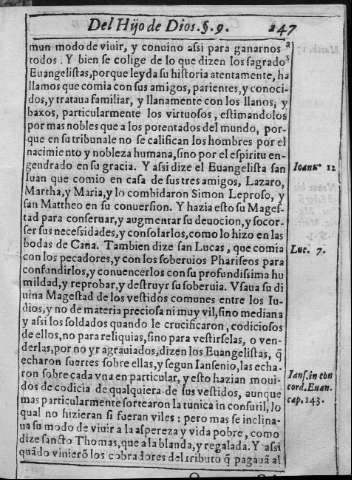 Del Hijo de Dios. §. 9. 247
mun modo de viuir, y conuino assi para ganarnos a
todos. Y bien se colige de lo que dizen los sagrados
Euangelistas, porque leyda su historia atentamente, ha
llamos que comia con sus amigos, parientes, y conoci-
dos, y trataua familiar, y llanamente con los llanos, y
baxos, particularmente los virtuosos, estimandolos
por mas nobles que a los potentados del mundo, por-
que en su tribunal no se califican los hombres por el
nacimiento y nobleza humana, sino por el espiritu en-
gendrado en su gracia. Y assi dize el Euangelista san
Iuan que comio en casa de sus tres amigos, Lazaro,
Martha, y Maria, y lo combidaron Simon Leproso, y
san Mattheo en su conuersion. Y hazia esto su Mages-
tad para conseruar, y augmentar su deuocion, y socor-
rer sus necessidades, y consolarlos, como lo hizo en las
bodas de Cana. Tambien dize san Lucas, que comia
con los pecadores, y con los soberuios Phariseos para
confundirlos, y conuencerlos con su profundissima hu
mildad, y reprobar, y destruyr su soberuia. Vsaua su di
uina Magestad de los vestidos comunes entre los Iu-
dios, y no de materia preciosa ni muy vil, sino mediana
y assi los soldados quando le crucificaron, codiciosos
de ellos, no para reliquias, sino para vestirselas, o ven-
derlas, por no yr agrauiados, dizen los Euangelistas, q̃
echaron suertes sobre ellas, y segun Iansenio, las echa
ron sobre cada vna en particular, y esto hazian moui-
dos de codicia de qualquiera de sus vestidos, aunque
mas particularmente sortearon la tunica inconsutil, lo
qual no hizieran si fueran viles: pero mas se inclina-
ua su modo de viuir a la aspereza y vida pobre, como
dize sancto Thomas, que a la blanda, y regalada. Y assi
quãdo vinierõ los cobradores del tributo q̃ pagauã al
Ioann. 12
Luc. 7.
Ians. in con
cord. Euan.
cap. 143.